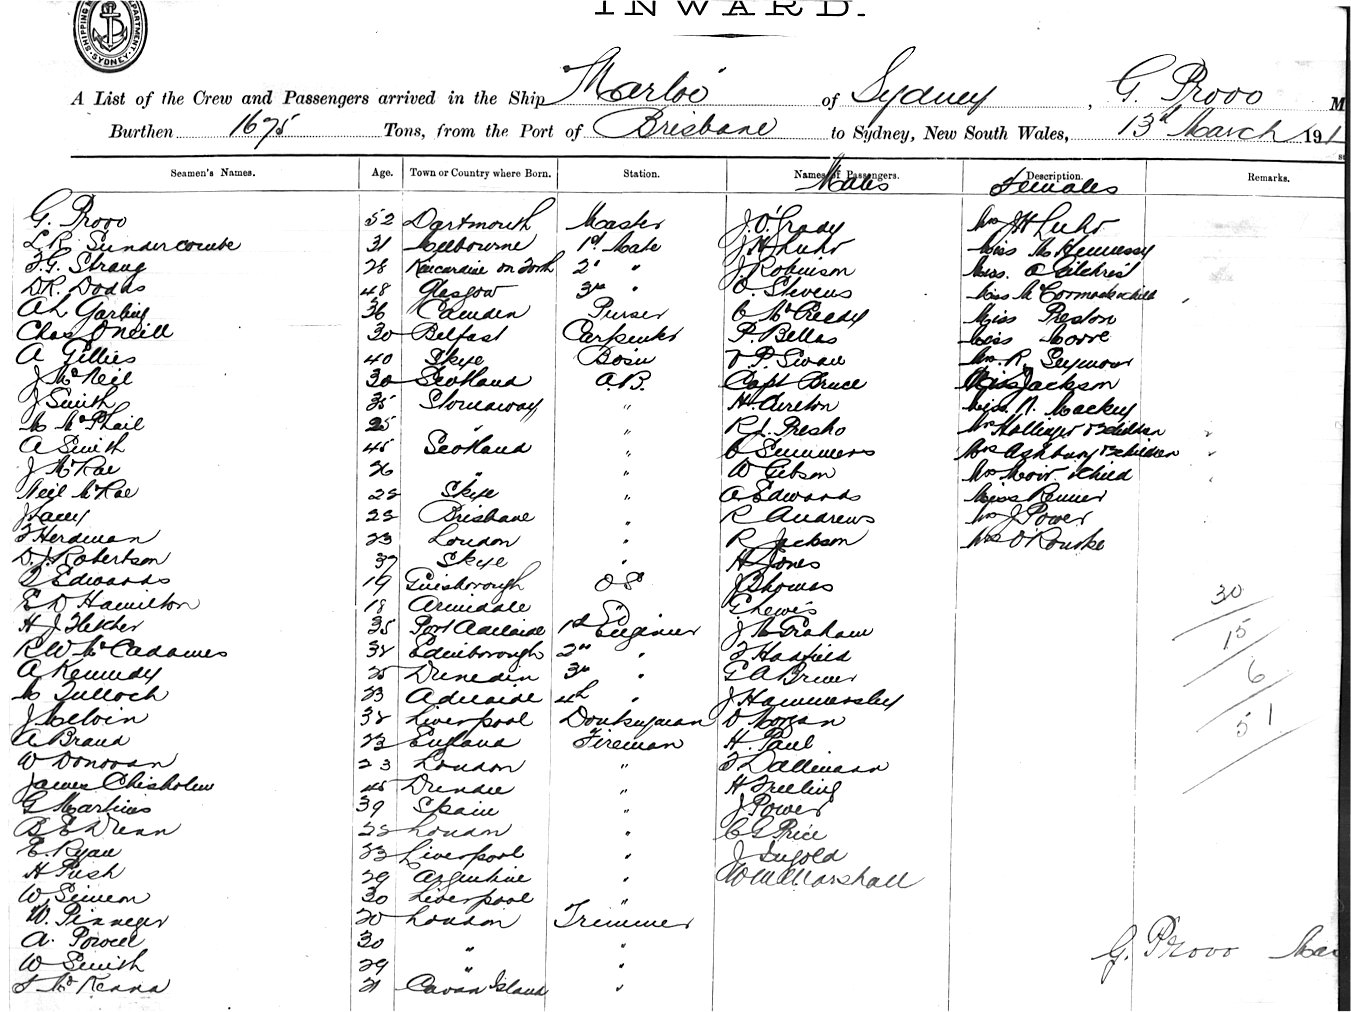 SHIPPING DEPARTMENT. SYDNEY.
INWARD.
A List of the Crew and Passengers arrived in the Ship Marloo of Sydney, G. Provo M
Burthen 1675 Tons, from the Port of Brisbane to Sydney, New South Wales, 13th March 191
Seamen's Names. Age. Town or Country where Born. Station. Names of Passengers. Males Description. Females Remarks.
G. Provo 52 Dartmouth Master J. O'Grady Mrs J H Luhr
L R Sundercombe 31 Melbourne 1st Mate J H Luhr Miss M Hennessy
F. G. Strang 28 Kincardine on Forth 2d " J. Robinson Miss. O Gilchrist
D R. Dodds 48 Glasgow 3rd " O Stevens Miss McCormack & child
A L Garling 36 Camden Purser C McCready Miss Preston
Chas O'Neill 30 Belfast Carpenter P. Bellas Miss Morre
A Gillies 40 Skye Bosun P. Swan Mrs. R. Seymour
J McNeil 30 Scotland A.B. Capt Bruce Jackson
J Smith 35 Stornaway " H. Aireton Miss. N. Mackey
M McPhail 25 " " R. J. Presho Mrs Hollinger children
A Smith 45 Scotland " O Summers Mrs Ashbury children
J McRae 26 " " W Gibson Mrs Moir & child
Neil McRae 22 Skye " A Edwards Miss Renner
J Lacey 22 Brisbane " R Andrews Mrs J Power
F Herdman 23 London " R Jackson Mrs O'Rourke
D. J. Robertson 37 Skye " H Jones
Edwards 19 Guisborough O S J Thomas
E D Hamilton 18 Armidale " G Lewis 30
H J Fletcher 35 Port Adelaide 1st Engineer J M Graham 15
R W McCadames 32 Edinborough 2nd " F Hadfield
A Kennedy 25 Dunedin 3rd " G A Brewer 6
M Tulloch 23 Adelaide 4th " J Hammersley
J Melvin 32 Liverpool Donkeyman D Morgan 51
A Brand 23 England Fireman H. Paul
W Donovan 23 London " F Dallimann
James Chisholm 45 Dundee " H Freeling
G Martins 39 Spain " J Power
B E Wrenn 22 London " C G Price
E. Ryan 23 Liverpool " J Ingold
H Push 29 Argentine " W M Marshall
W. Simeon 30 Liverpool "
W. Pinneger 20 London Trimmer
A. Powell 30 " " G. Provo Mas
W Smith 29 " "
J McKenna 21 Cavan Island "